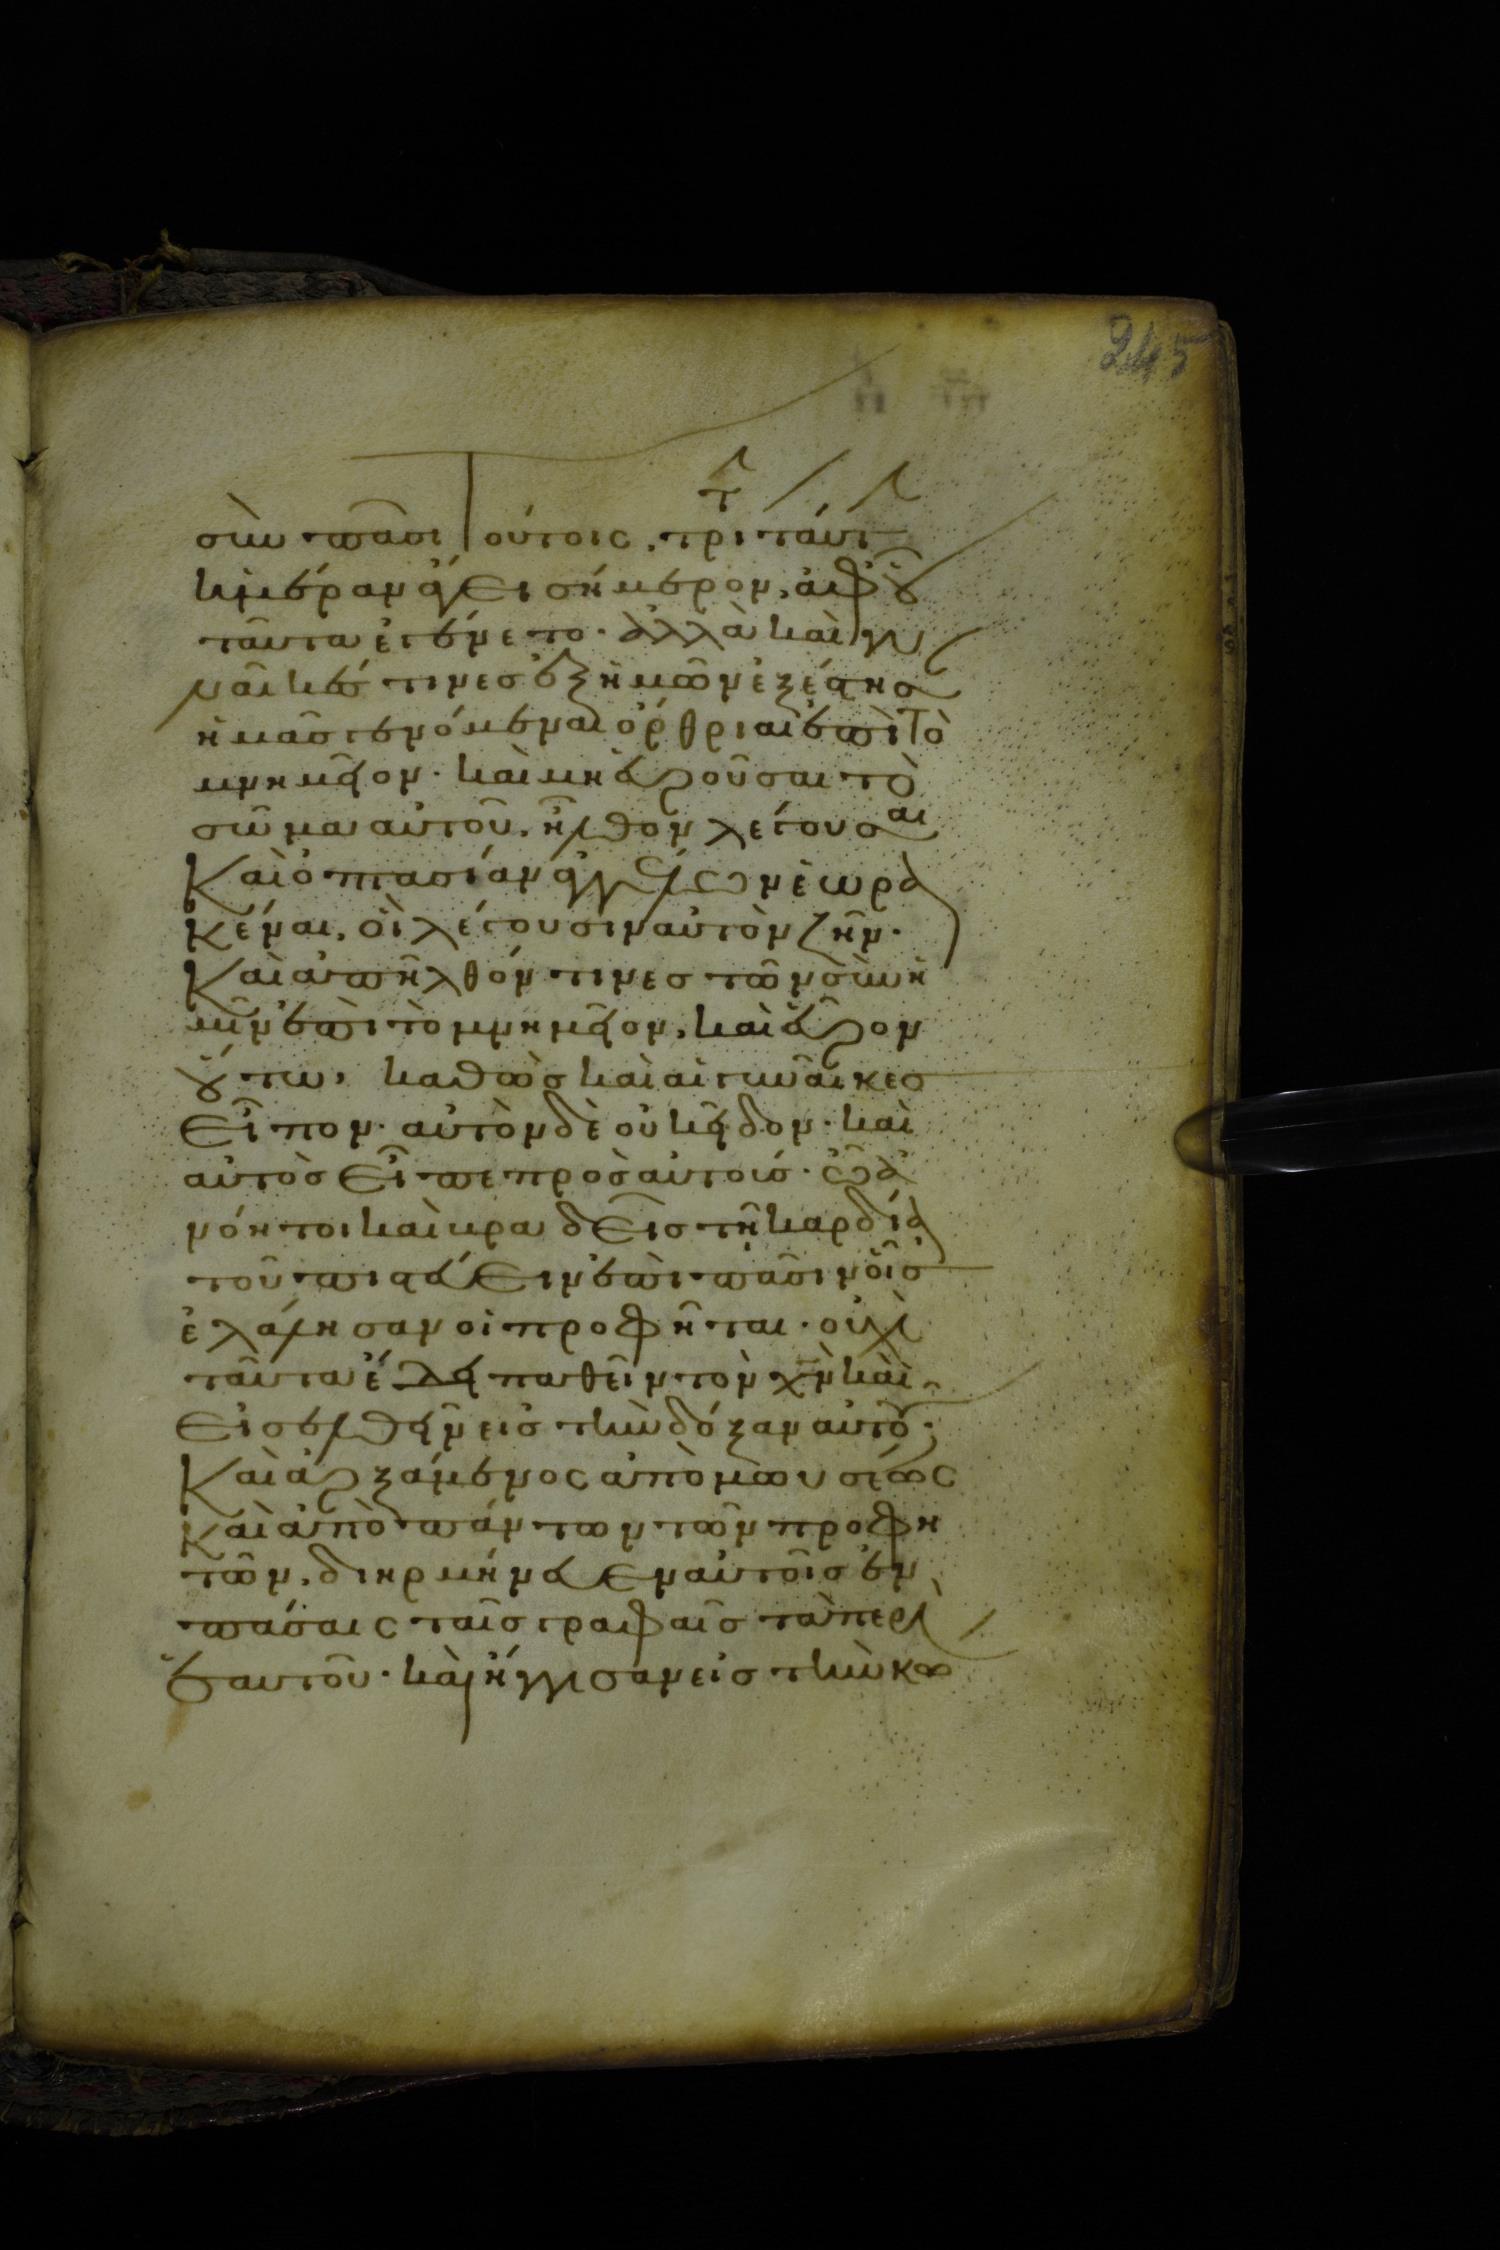 245
σὺν πᾶσι τούτοις, τρίτην ταύτην
ἡμέραν ἄγει σήμερον, ἀφ οὗ
ταῦτα ἐγένετο. ἀλλὰ καὶ γυ
ναῖκές τινες ἐξ ἡμῶν ἐξέστησαν
ἡμᾶς γενόμεναι ὄρθριαι ἐπὶ τὸ
μνημεῖον. καὶ μὴ εὑροῦσαι τὸ
σῶμα αὐτοῦ, ἦλθον λέγουσαι
καὶ ὀπτασίαν ἀγγέλων ἑωρα
κέναι, οἳ λέγουσιν αὐτὸν ζῆν.
καὶ ἀπῆλθόν τινες τῶν σὺν ἡ
μῖν ἐπὶ τὸ μνημεῖον, καὶ εὗρον
οὕτω, καθὼς καὶ αἱ γυναῖκες
εἶπον. αὐτὸν δὲ οὐκ εἶδον. καὶ
αὐτὸς εἶπε πρὸς αὐτούς. ὦ ἀ
νόητοι καὶ βραδεῖς τῇ καρδίᾳ
τοῦ πιστεύειν ἐπὶ πᾶσιν οἷς
ἐλάλησαν οἱ προφῆται. οὐχὶ
ταῦτα ἔδει παθεῖν τὸν χν καὶ
εἰσελθεῖν εἰς τὴν δόξαν αὐτοῦ.
καὶ ἀρξάμενος ἀπὸ μωυσέως
καὶ ἀπὸ πάντων τῶν προφη
τῶν, διηρμήνευεν αὐτοῖς ἐν
πάσαις ταῖς γραφαῖς τὰ περὶ
ἑαυτοῦ. καὶ ἤγγισαν εἰς τὴν κώ